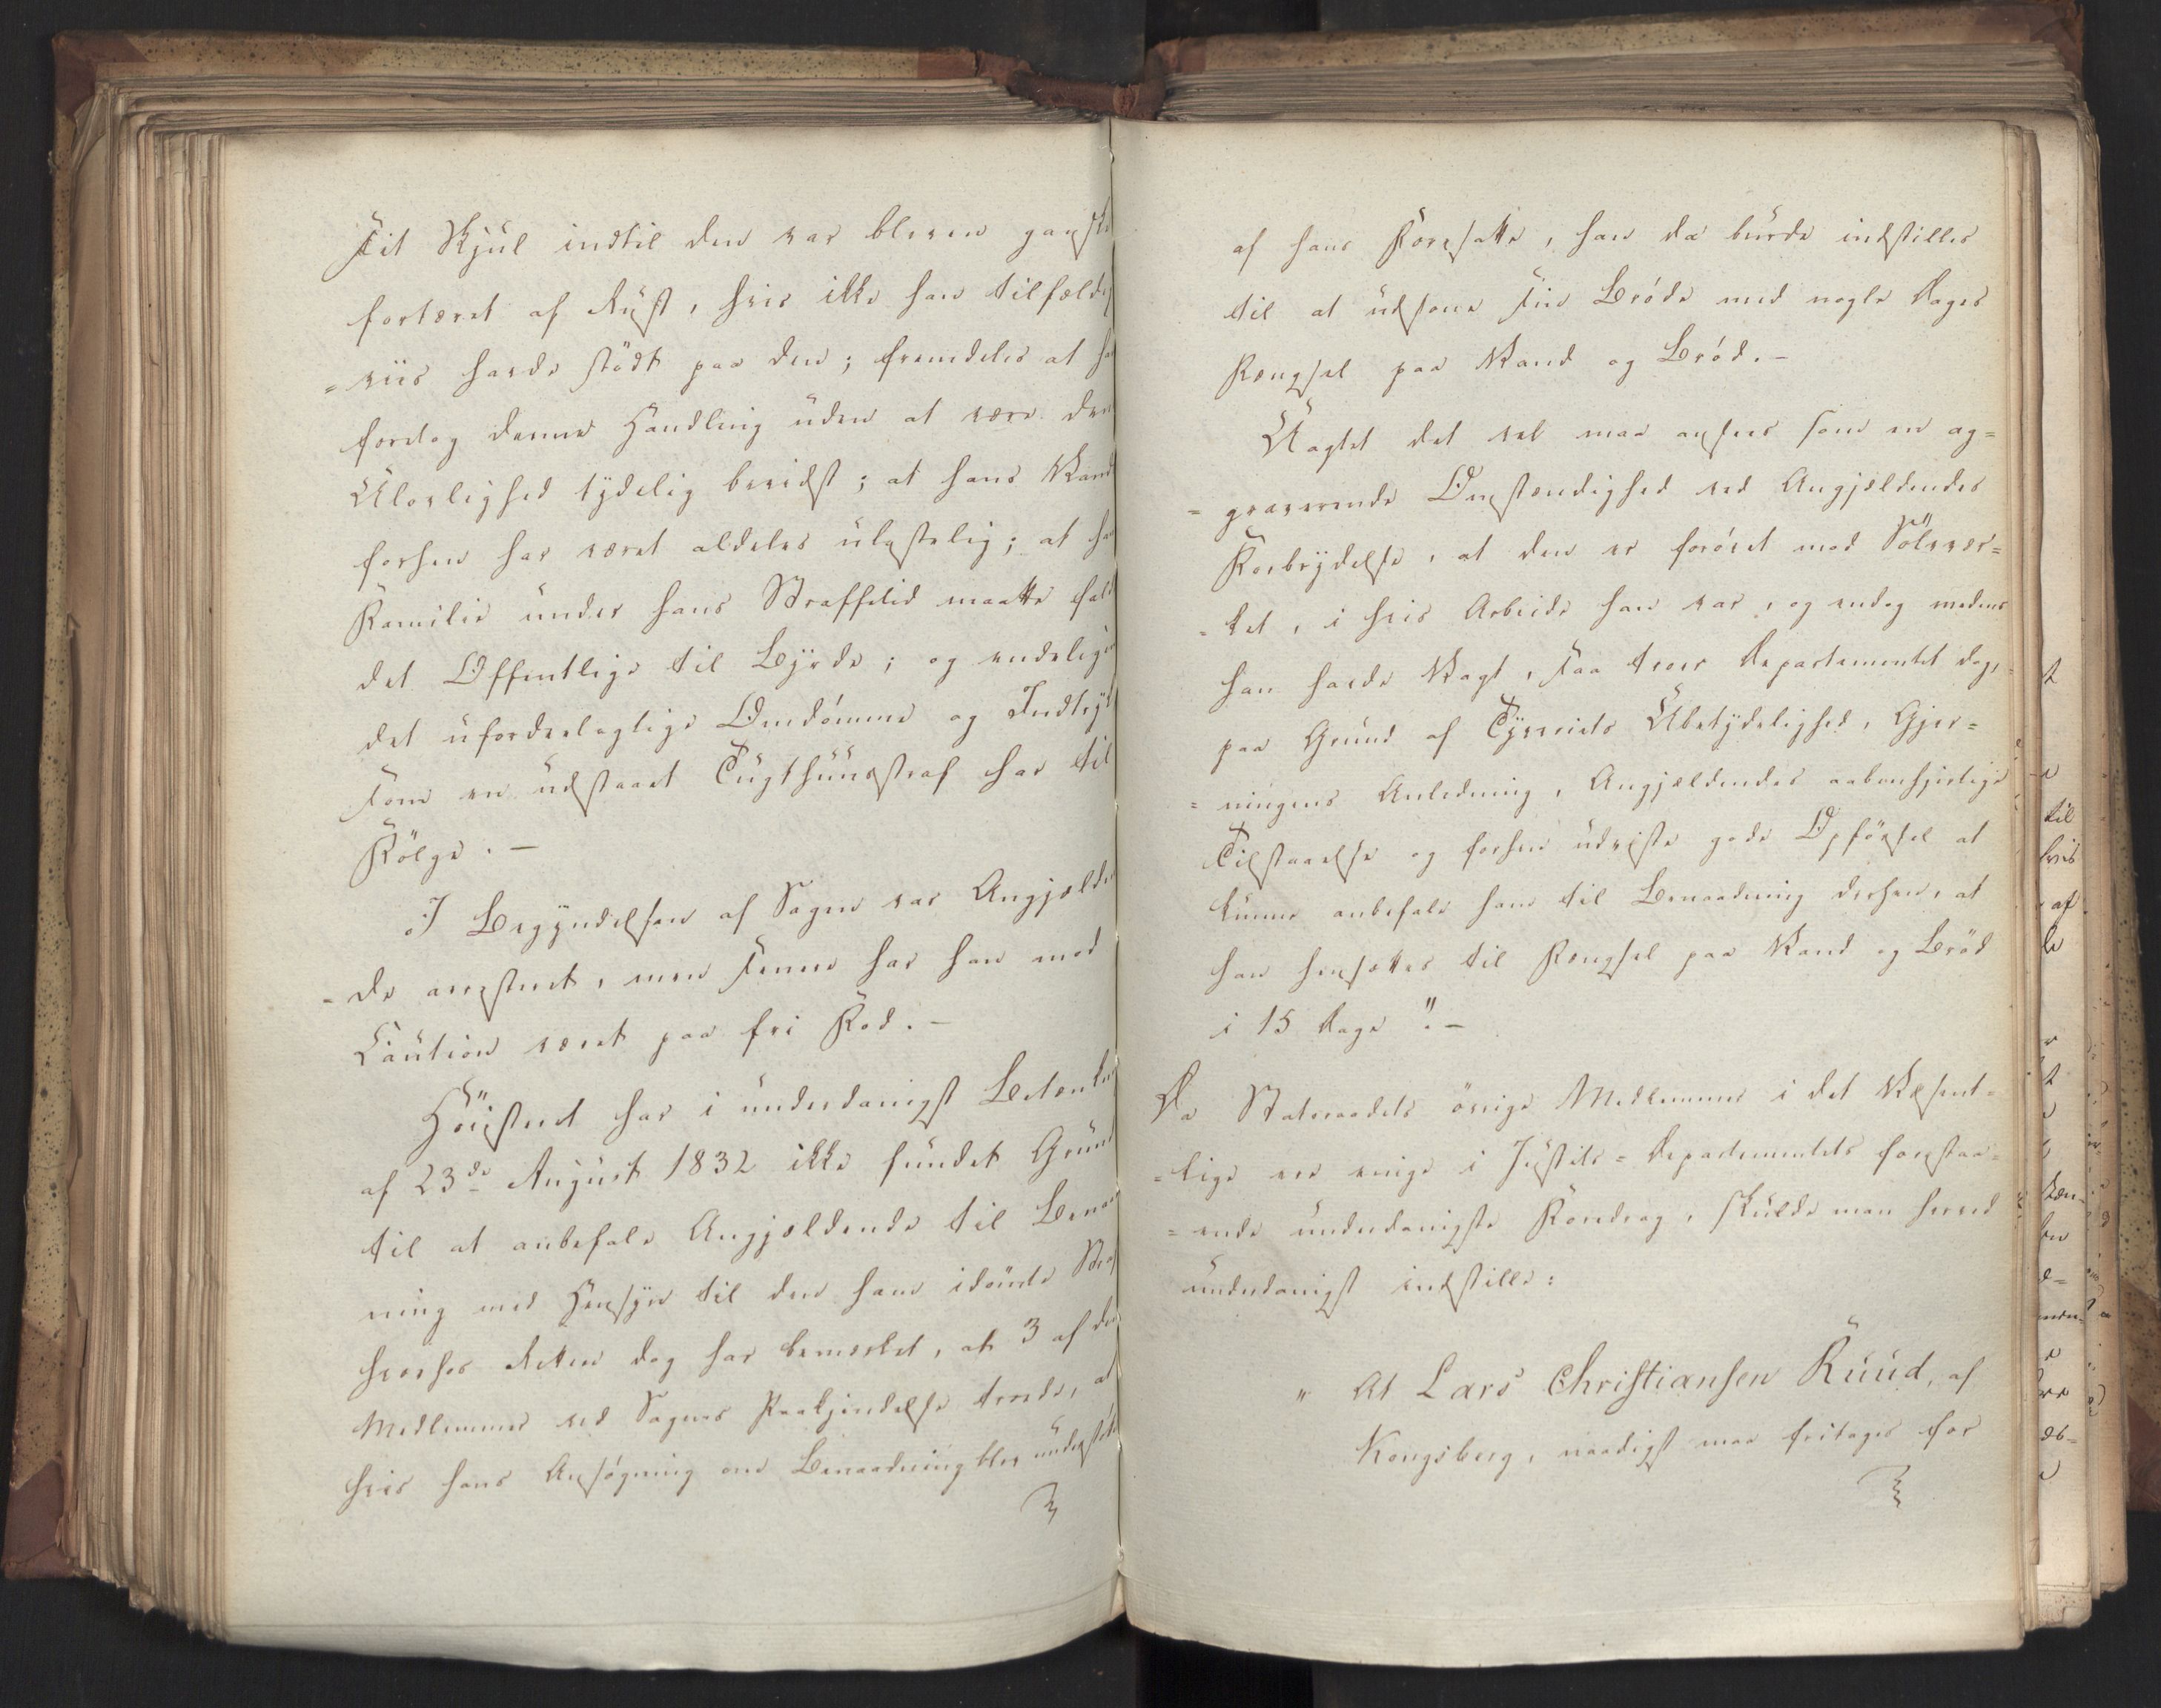 sit Skjul indtil den var bleven ganske
fortæret af Rust, hvis ikke han tilfældig
=viis havde stødt paa den; fremdeles at han
foretog denne Handling uden at være dens
Ulovlighed tydelig bevidst; at hans Vand
forhen har været aldeles ulastelig; at hans
Familie under hans Straffetid maatte falde
det Offentlige til Byrde; og endelig
det ufordeelagtige Omdømme og Indtryk
som en udstaaet Tugthuusstraf har til
Følge. –
I Begyndelsen af Sagen var Angjælden
=de arresteret, men senere har han mod
Caution været paa fri Fod. –
Höiesteret har i underdanigst Betænkning
af 23de August 1832 ikke fundet Grund
til at anbefale Angjældende til Benaad
ning med Hensyn til den ham idömte Straf
hvorhos Retten dog har bemærket, at 3 af dens
Medlemmer ved Sagens Paakjendelse troede, at
hvis hans Ansøgning om Benaadning blev understøttet
af hans Foresatte, han da burde indstilles
til at udsone sin Brøde med nogle Dages
Fængsel paa Vand og Brød. –
Uagtet det vel maa ansees som en ag=
=graverende Omstændighed ved Angjældendes
Forbrydelse, at den er forøvet mod Sölvvær=
=ket, i hvis Arbeide han var, og endog medens
han havde Vagt, saa troer Departementet dog,
paa Grund af Tyveriets Ubetydelighed, Gjer=
=ningens Anledning, Angjældendes aabenhjertige
Tilstaaelse og forhen udviste gode Opførsel at
kunne anbefale ham til Benaadning derhen, at
han hensættes til Fængsel paa Vand og Brød
i 15 Dage". –
Da Statsraadets övrige Medlemmer i det Væsent=
=lige ere enige i Justits=Departementets forestaa=
=ende underdanigste Foredrag, skulde man herved
underdanigst indstille:
" At Lars Christiansen Ruud, af
Kongsberg, naadigst maa fritages for